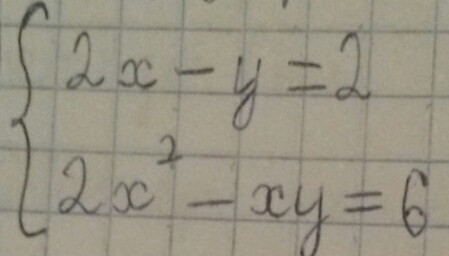 2x - y = 2
2x² - xy = 6